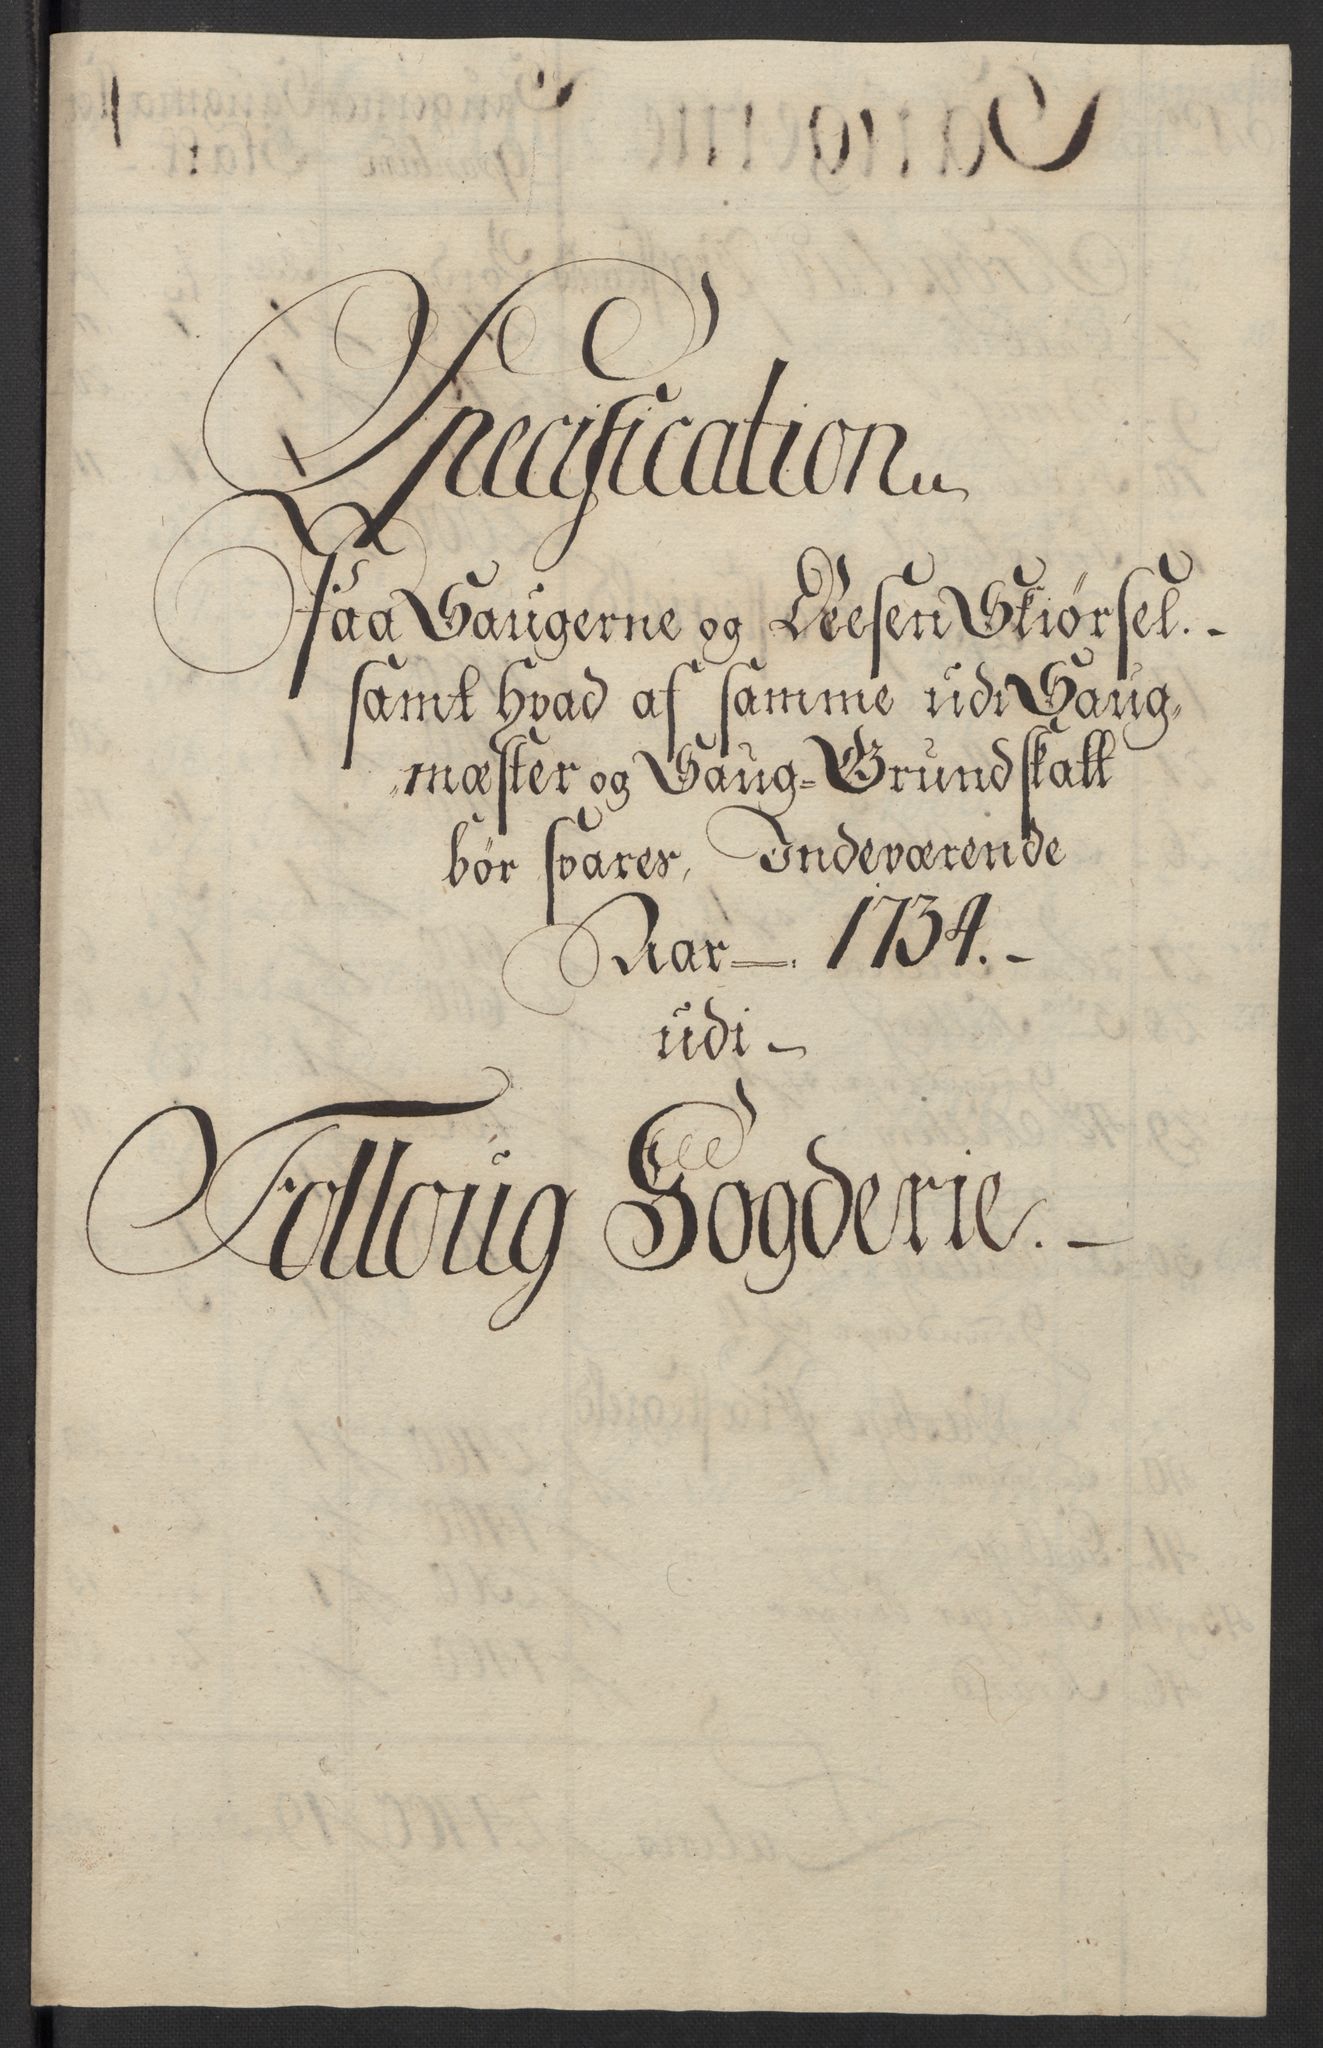 Specification
Paa Saugerne og Deesen Skiørsel.
samt hvad af samme udi Saug-
mæster og Saug-Grundskatt
bør svares, Indeværende
Aar 1734.
udi
Folloug Fogderie.